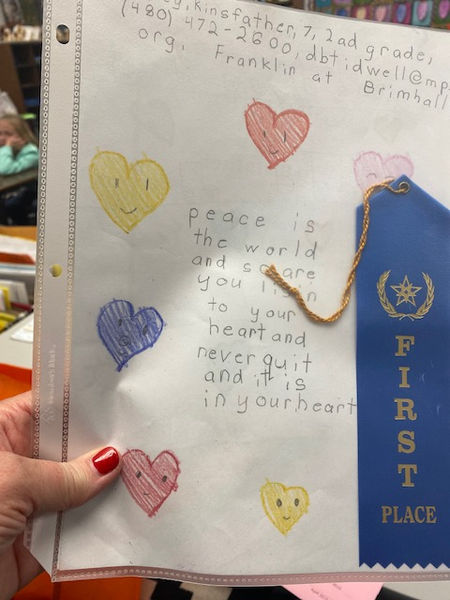 kinsfather, 7, 2ad grade,
(480) 472-2600, dbtidwell@mp
org. Franklin at
Brimhall
peace is
the world
and so are
you lisin
to your
heart and
never quit
and it is
in your heart
FIRST
PLACE